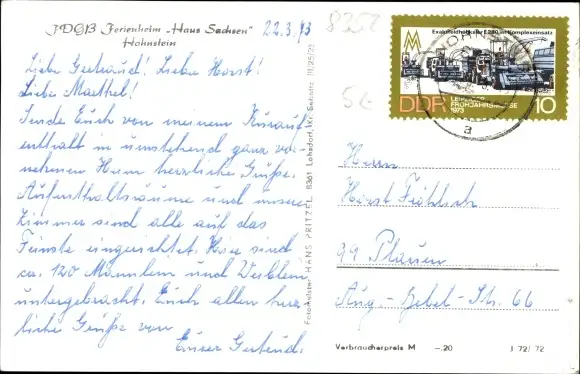 FDGB Ferienheim „Haus Sachsen"
Hohnstein
22.3.73
8352
Liebe Gertraud! Lieber Horst!
Liebe Maethel!
Sende Euch von meinem Kurauf-
enthalt in umstehend ganz vor-
nehmen Heim herzliche Grüße.
Aufenthaltsräume und unsere
Zimmer sind alle auf das
Feinste eingerichtet. Hier sind
ca. 120 Männlein und Weiblein
untergebracht. Euch allen herz-
liche Grüße von
Eurer Gertrud.
Foto-Anstalt HANS PRITZEL 8361 Lohsdorf, Kr. Sebnitz
Exaktfeldhäcksler E 280 im Komplexeinsatz
DDR
LEIPZIGER
FRÜHJAHRSMESSE
1973
10
a
Herrn
Horst Fröhlich
99 Plauen
Aug.-Bebel-Str. 66
Verbraucherpreis M -.20
J 72/72